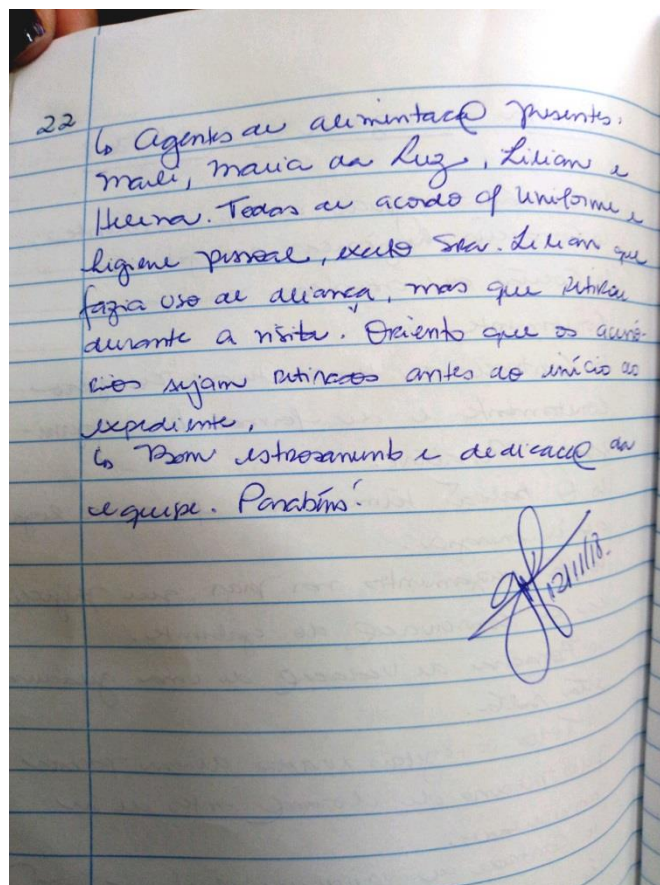 22
↳ Agentes de alimentação presentes:
Marli, Maria da Luz, Lilian e
Helena. Todas de acordo c/ uniforme e
higiene pessoal, exceto Sra. Lilian que
fazia uso de aliança, mas que retirou
durante a visita. Oriento que os acessó-
rios sejam retirados antes do início do
expediente.
↳ Bom entrosamento e dedicação da
equipe. Parabéns!
12/11/18.